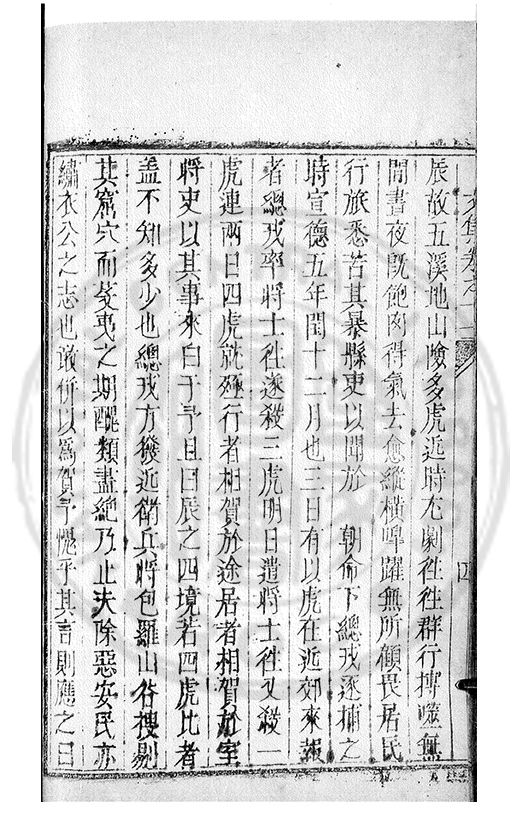 辰故五溪地山險多虎近時尤劇徃徃群行搏噬無
間晝夜旣飽肉得氣去愈縱橫嘷躍無所顧畏居民
行旅悉苦其暴縣吏以聞於 朝命下總戎逐捕之
時宣德五年閏十二月也三日有以虎在近郊來報
者總戎率將士徃逐殺三虎明日遣將士徃又殺一
虎連兩日四虎就殛行者相賀於途居者相賀於室
將吏以其事來白于予且曰辰之四境若四虎比者
盖不知多少也總戎方發近衛兵將包羅山谷搜剔
其窟穴而芟夷之期醜類盡絶乃止夫除惡安民亦
繡衣公之志也敢併以爲賀予愧乎其言則應之曰
文集卷之
四